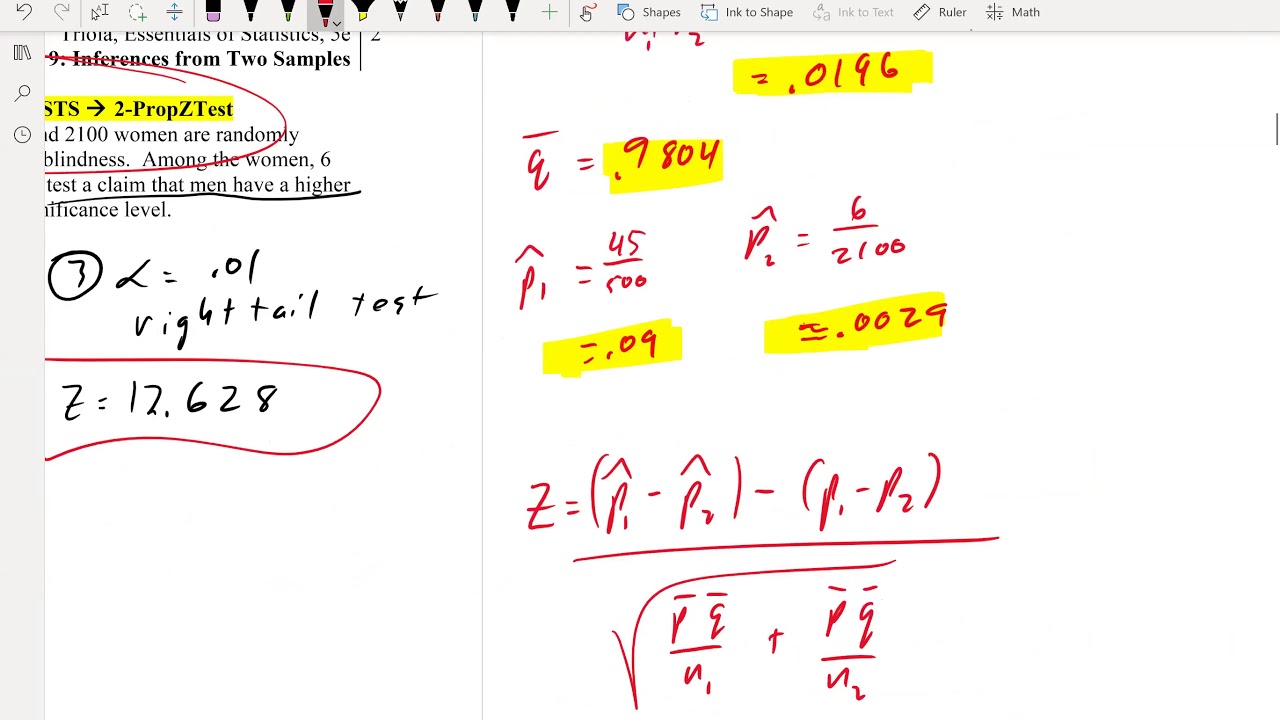 Shapes Ink to Shape Ink to Text Ruler Math
Triola, Essentials of Statistics, 3e 2
9: Inferences from Two Samples
STS → 2-PropZTest
nd 2100 women are randomly
blindness. Among the women, 6
test a claim that men have a higher
nificance level.
③ α = .01
right tail test
Z = 12.628
n₁ n₂
= .0196
q̅ = .9804
p̂₁ = 45/500
= .09
p̂₂ = 6/2100
≈ .0029
Z = (p̂₁ - p̂₂) - (p₁ - p₂)
√ p̅ q̅ / n₁ + p̅ q̅ / n₂